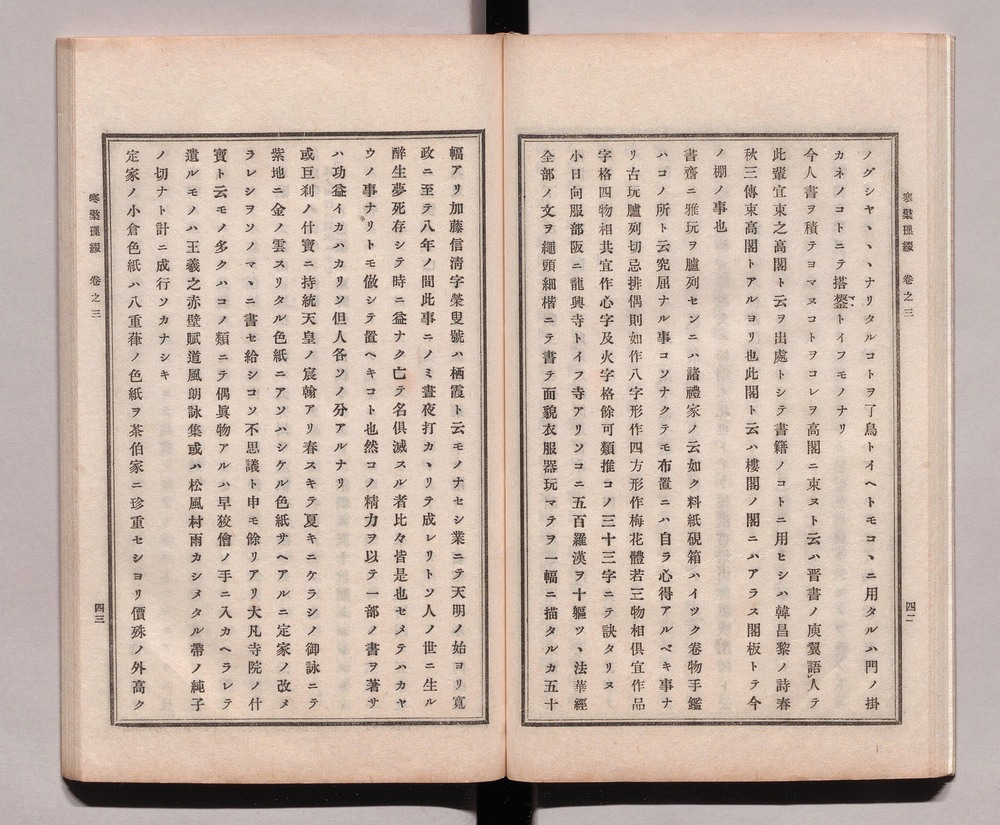 寒檠璅綴　卷之三
四二
ノグシヤヽヽヽナリタルコトヲ了鳥トイヘトモコヽニ用タルハ門ノ掛
カネノコトニテ搭鐢トイフモノナリ
今人書ヲ積テヨマヌコトヲコレヲ高閣ニ束ヌト云ハ晋書ノ庾翼語人テ
此輩宜束之高閣ト云ヲ出處トシテ書籍ノコトニ用ヒシハ韓昌黎ノ詩春
秋三傳束高閣トアルヨリ也此閣ト云ハ樓閣ノ閣ニハアラス閣板トテ今
ノ棚ノ事也
書齋ニ雅玩ヲ臚列センニハ諸禮家ノ云如ク料紙硯箱ハイツク卷物手鑑
ハコノ所ト云究屈ナル事コソナクテモ布置ニハ自ラ心得アルベキ事ナ
リ古玩臚列切忌排偶則如作八字形作四方形作梅花體若三物相俱宜作品
字格四物相共宜作心字及火字格餘可類推コノ三十三字ニテ訣タリヌ
小日向服部阪ニ龍興寺トイフ寺アリソコニ五百羅漢ヲ十軀ツヽ法華經
全部ノ文ヲ繩頭細楷ニテ書テ面貌衣服器玩マテヲ一幅ニ描タルカ五十
幅アリ加藤信淸字榮叟號ハ栖霞ト云モノナセシ業ニテ天明ノ始ヨリ寬
政ニ至テ八年ノ間此事ニノミ晝夜打カヽリテ成レリトソ人ノ世ニ生ル
醉生夢死存シテ時ニ益ナク亡テ名俱滅スル者比々皆是也セメテハカヤ
ウノ事ナリトモ做シテ置ヘキコト也然コノ精力ヲ以テ一部ノ書ヲ著サ
ハ功益イカハカリソ但人各ソノ分アルナリ
或巨刹ノ什寶ニ持統天皇ノ宸翰アリ春スキテ夏キニケラシノ御詠ニテ
紫地ニ金ノ雲スリタル色紙ニアソハシケル色紙サヘアルニ定家ノ改メ
ラレシヲソノマヽニ書セ給シコソ不思議ト申モ餘リアリ大凡寺院ノ什
寶ト云モノ多クハコノ類ニテ偶眞物アルハ早狡儈ノ手ニ入カヘラレテ
遣ルモノハ王羲之赤壁賦道風朗詠集或ハ松風村雨カシメタル帶ノ純子
ノ切ナト計ニ成行ソカナシキ
定家ノ小倉色紙ハ八重葎ノ色紙ヲ茶伯家ニ珍重セシヨリ價殊ノ外高ク
寒檠璅綴　卷之三
四三